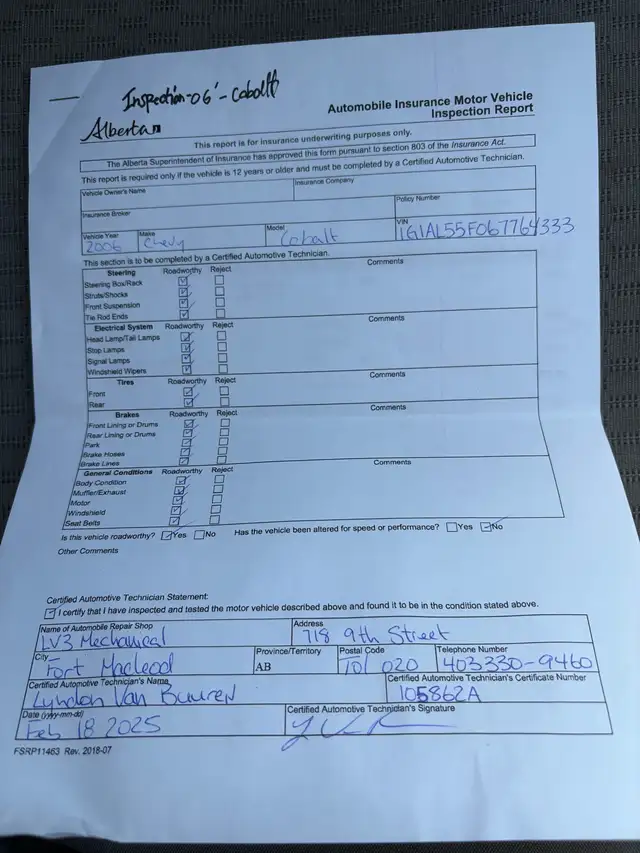 Inspection-06'-Cobalt
Alberta
Automobile Insurance Motor Vehicle
Inspection Report
This report is for insurance underwriting purposes only.
The Alberta Superintendent of Insurance has approved this form pursuant to section 803 of the Insurance Act.
This report is required only if the vehicle is 12 years or older and must be completed by a Certified Automotive Technician.
Vehicle Owner's Name Insurance Company
Insurance Broker Policy Number
Vehicle Year Make Model VIN
2006 Chevy Cobalt 1G1AL55F067764333
This section is to be completed by a Certified Automotive Technician.
Steering Roadworthy Reject Comments
Steering Box/Rack
Struts/Shocks
Front Suspension
Tie Rod Ends
Electrical System Roadworthy Reject Comments
Head Lamp/Tail Lamps
Stop Lamps
Signal Lamps
Windshield Wipers
Tires Roadworthy Reject Comments
Front
Rear
Brakes Roadworthy Reject Comments
Front Lining or Drums
Rear Lining or Drums
Park
Brake Hoses
Brake Lines
General Conditions Roadworthy Reject Comments
Body Condition
Muffler/Exhaust
Motor
Windshield
Seat Belts
Is this vehicle roadworthy? Yes No Has the vehicle been altered for speed or performance? Yes No
Other Comments
Certified Automotive Technician Statement:
I certify that I have inspected and tested the motor vehicle described above and found it to be in the condition stated above.
Name of Automobile Repair Shop Address
LV3 Mechanical 718 9th Street
City Province/Territory Postal Code Telephone Number
Fort Macleod AB T0L 0Z0 403330-9460
Certified Automotive Technician's Name Certified Automotive Technician's Certificate Number
Lyndon Van Buuren 105862A
Date (yyyy-mm-dd) Certified Automotive Technician's Signature
Feb 18 2025
FSRP11463 Rev. 2018-07